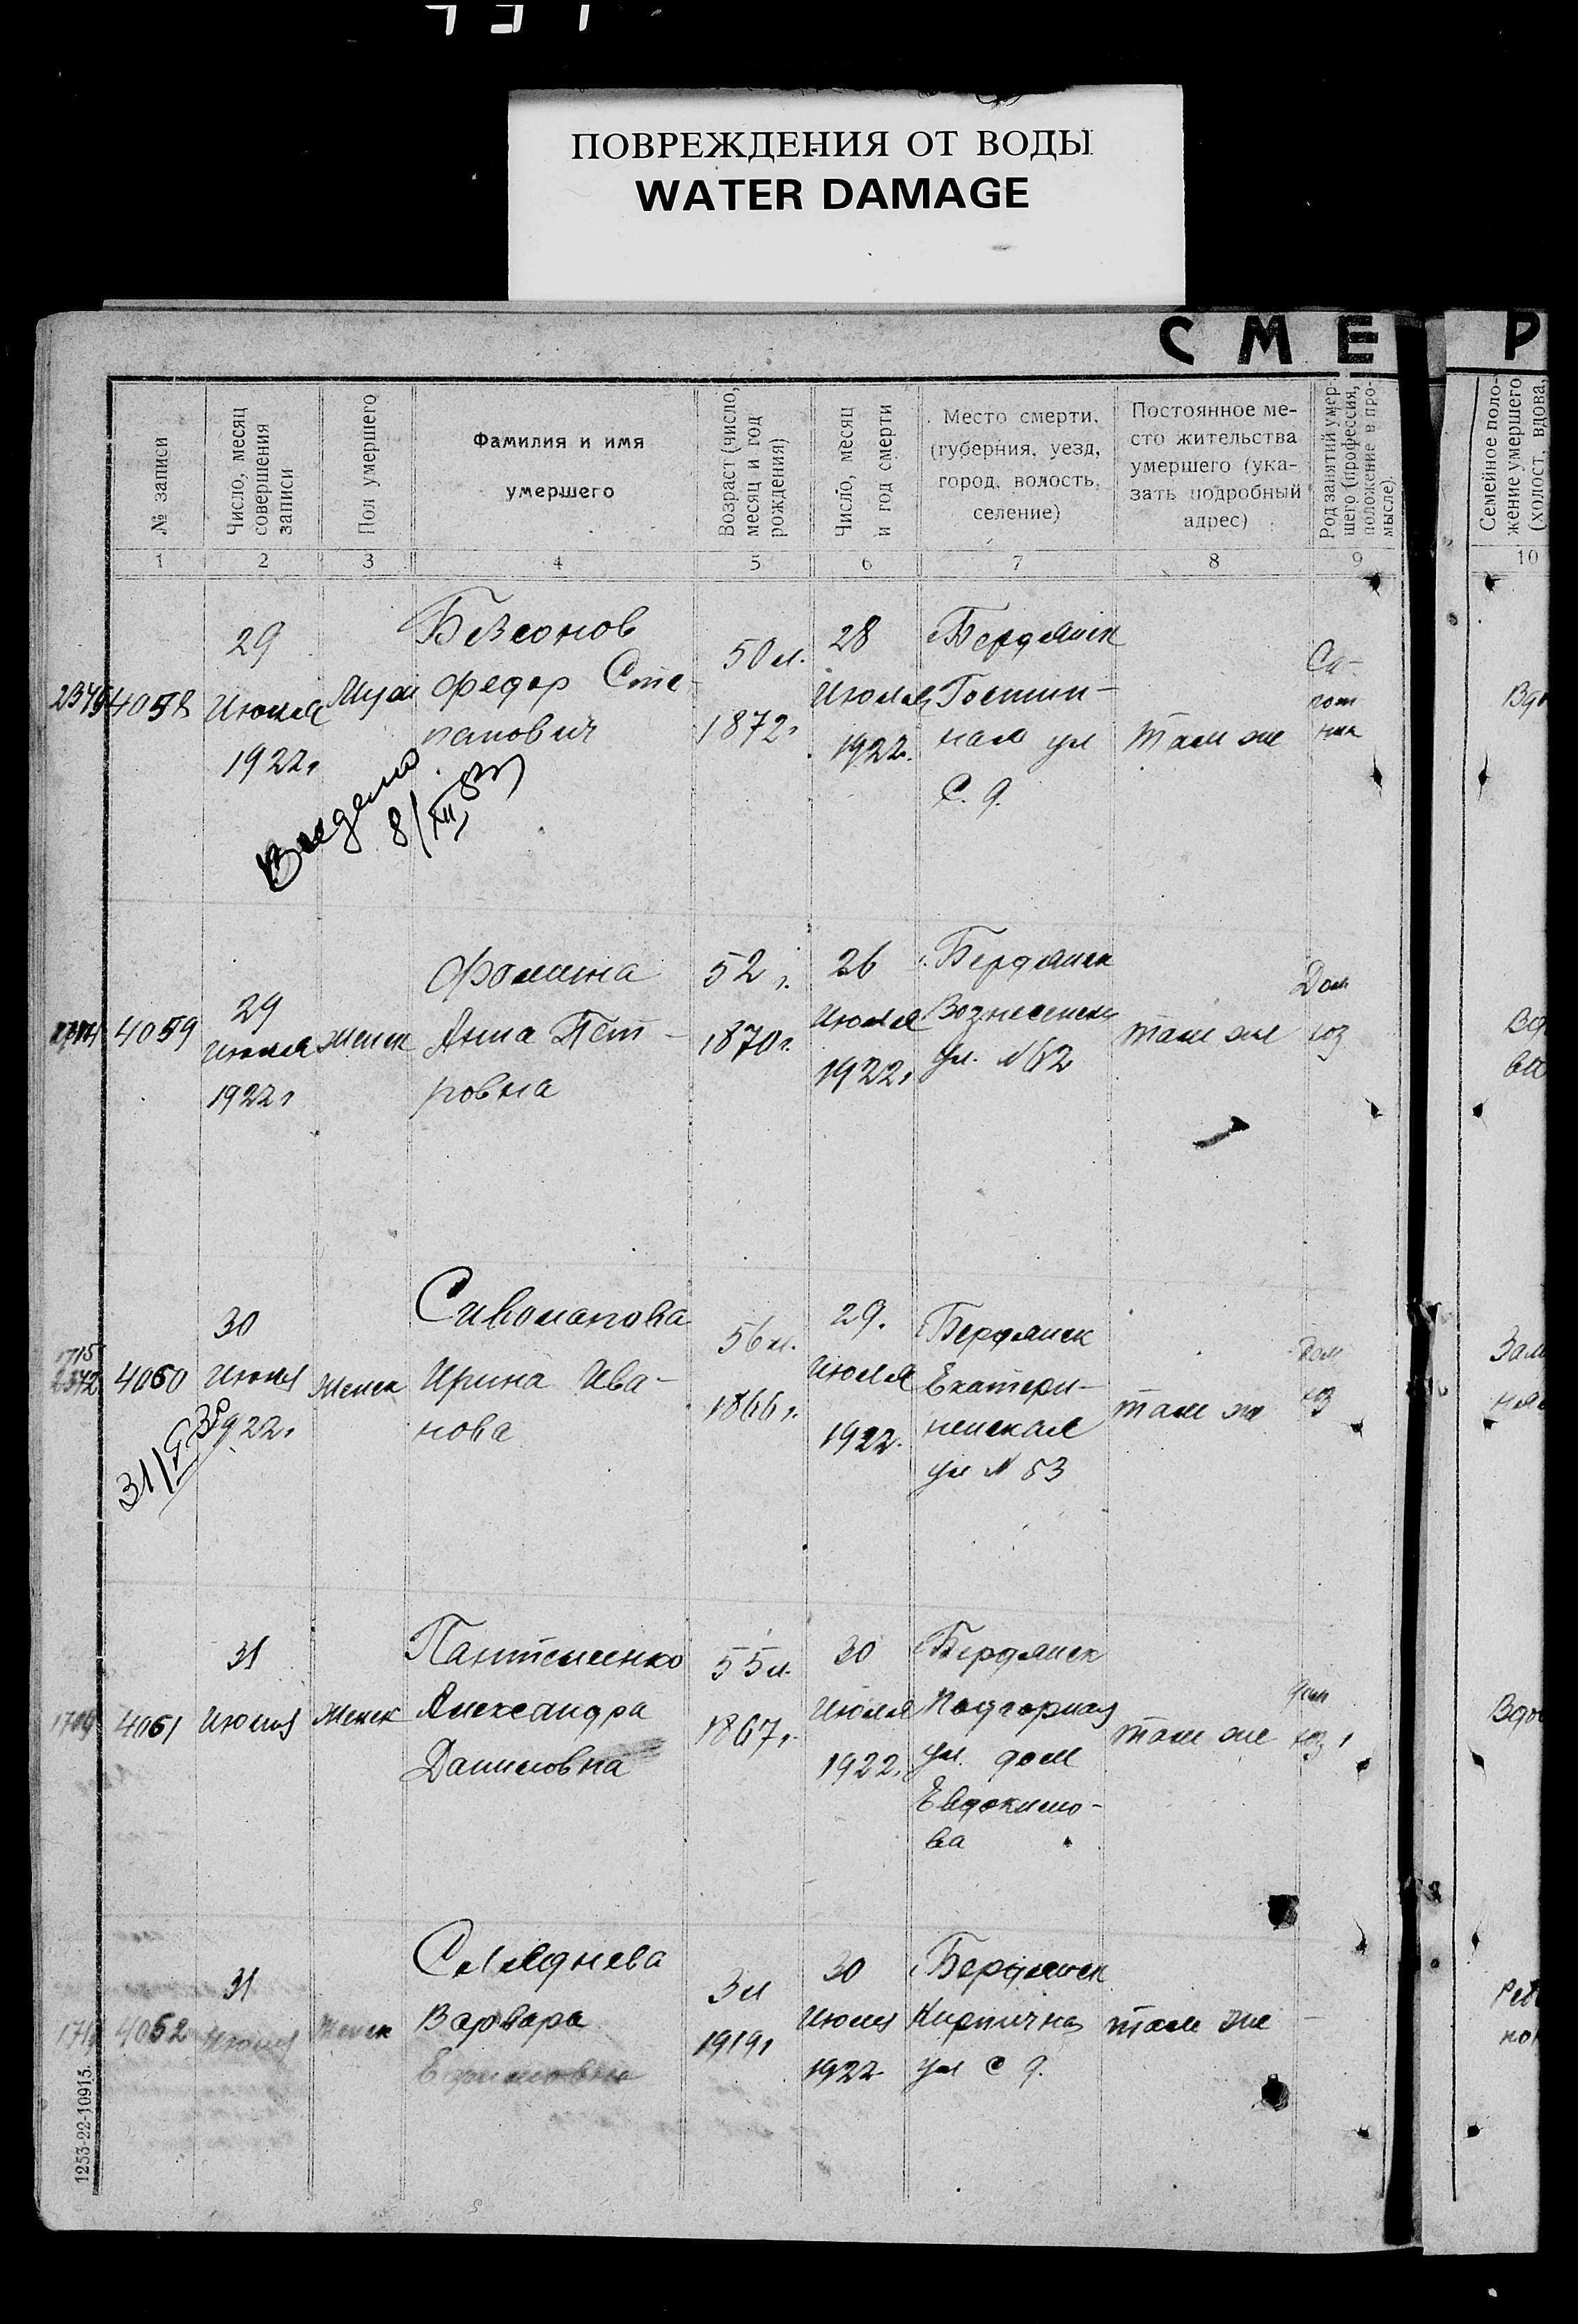 ПОВРЕЖДЕНИЯ ОТ ВОДЫ
WATER DAMAGE
СМЕ Р
№ записи
Число, месяц совершения записи
Пол умершего
Фамилия и имя умершего
Возраст (число, месяц и год рождения)
Число, месяц и год смерти
Место смерти, (губерния, уезд, город, волость, селение)
Постоянное место жительства умершего (указать подробный адрес)
Род занятий умершего (профессия, положение в промысле).
Семейное положение умершего (холост, вдова,
1 2 3 4 5 6 7 8 9 10
4058
29
Июля
1922г
Муж
Федор Сте-
панович
50 л.
1872г
28
Июля
1922г.
Бердянск
Гостин-
ная ул
С. д.
там же
Са-
пож
ник
Вд
8/XII
4059
29
Июля
1922г
Женск
Фомина
Анна Пет-
ровна
52 г.
1870г.
26
Июля
1922г
Бердянск
Вознесенск
ул. №62
там же
Дом
хоз
4060
30
Июля
1922г.
Женск
Ирина Ива-
нова
56 л.
1866г.
29.
Июля
1922.
Бердянск
Екатери-
ненская
ул № 53
там же
Дом
хоз
Зам
4061
31
Июля
Женск
Александра
Даниловна
55 л.
1867г.
30
Июля
1922г
Бердянск
Подгорная
ул. дом
Евдокимо-
ва
там же
хоз
Вдов
4062
31
Июля
Женск
Варвара
3 л
1919г
30
Июля
1922
Бердянск
Кирпична
ул с д.
там же
-
1253-22-10915.